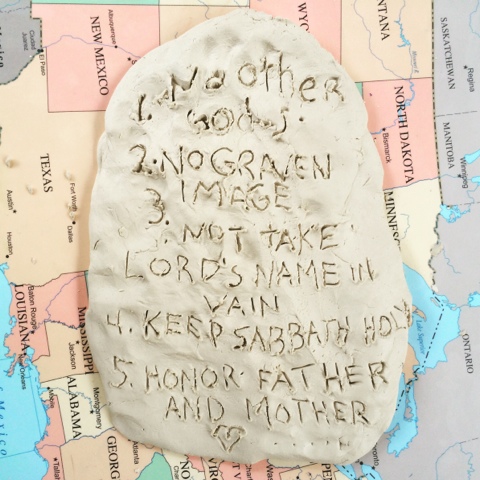 1. No other
Gods.
2. NO GRAVEN
IMAGE
3.
NOT TAKE
LORD'S NAME IN
VAIN
4. KEEP SABBATH HOLY
5. HONOR FATHER
AND MOTHER
NEW MEXICO
Albuquerque
Ciudad
Juarez
El Paso
TEXAS
Fort Worth
Dallas
Austin
Houston
LOUISIANA
Baton Rouge
MISSISSIPPI
Jackson
ALABAMA
Montgomery
Mobile
GEORG
NORTH DAKOTA
Bismarck
SASKATCHEWAN
Regina
MANITOBA
Winnipeg
ONTARIO
Lake Superior
Mexico